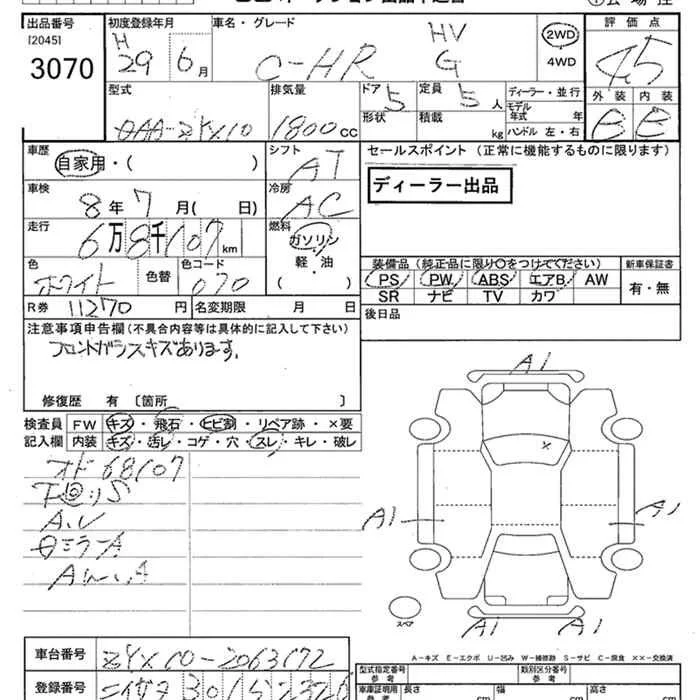 出品番号 初度登録年月 車名・グレード 評価点
[2045] H HV 2WD
3070 29 6月 C-HR G 4WD 4.5
型式 排気量 ドア 5 定員 5人 ディーラー・並行 外装 内装
DAA-ZYX10 1800cc 形状 積載 kg モデル年式 年 B B
ハンドル 左・右
車歴 シフト セールスポイント (正常に機能するものに限ります)
自家用・( ) AT
ディーラー出品
車検 冷房
8年7月( 日) AC
走行 燃料
6万8千107km ガソリン
軽・油
装備品 (純正品に限り○をつけてください) 新車保証書
色 色替 色コード ( )
ホワイト 070
PS PW ABS エアB AW 有・無
SR ナビ TV カワ
R券 11270円 名変期限 月 日
後日品
注意事項申告欄(不具合内容等は具体的に記入して下さい)
フロントガラスキズあります。
修復歴 有 〔箇所 〕
検査員 FW キズ・飛石・ヒビ割・リペア跡・×要
記入欄 内装 キズ・汚レ・コゲ・穴・スレ・キレ・破レ
オド68107
A1
A1 A1
A1 A1
スペア
車台番号 ZYX10-2063172
A-キズ E-エクボ U-凹み W-補修跡 S-サビ C-腐食 ××-交換済
型式指定番号 参考 類別区分番号 参考
登録番号
車庫証明用 参考 長さ cm 幅 cm 高さ cm